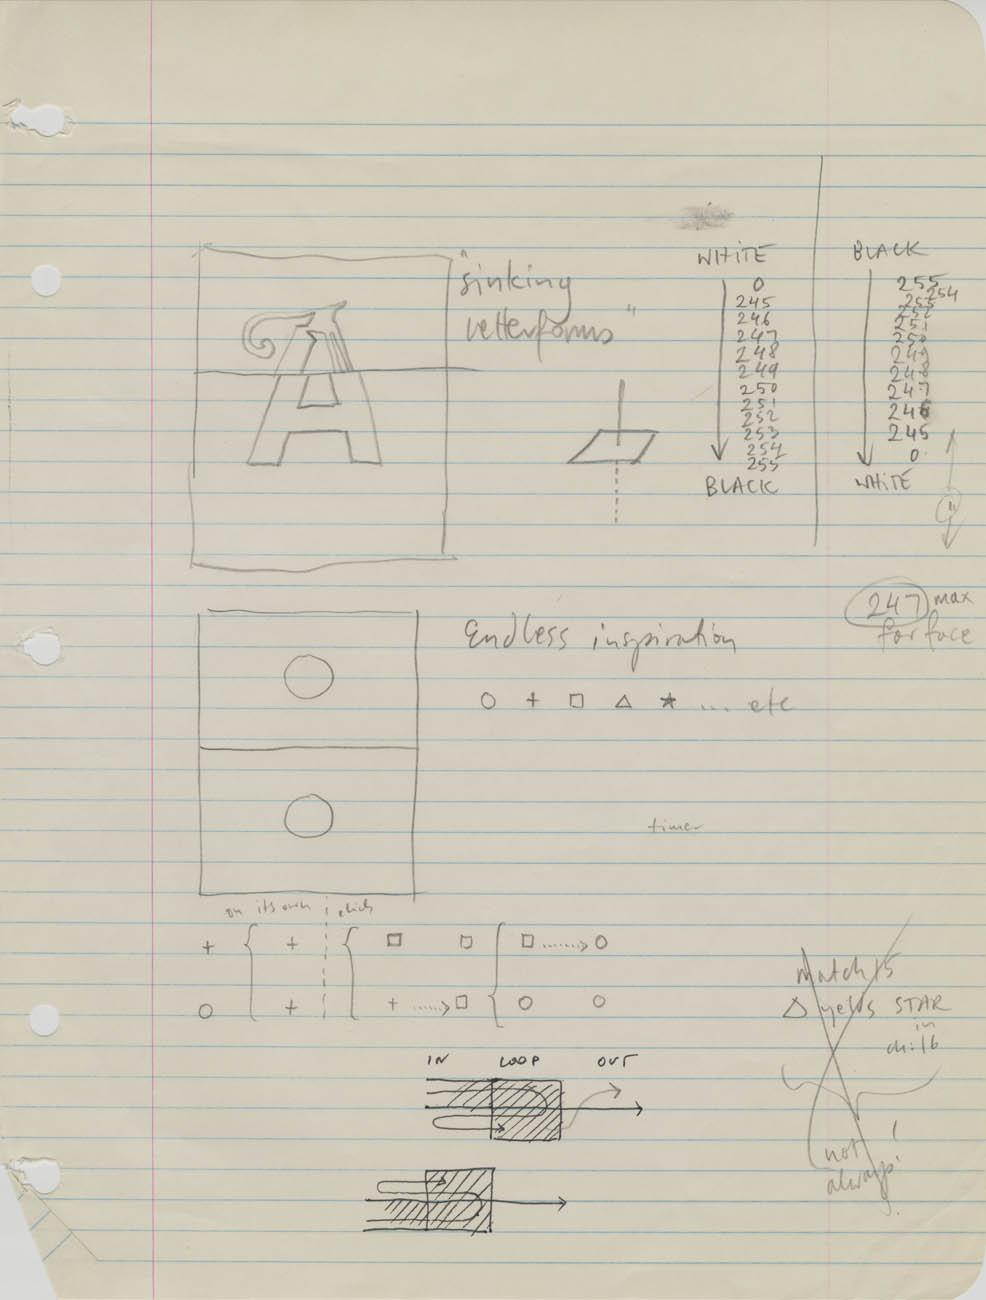 "sinking
letterforms"
WHITE
0
245
246
247
248
249
250
251
252
253
254
255
BLACK
BLACK
255
254
253
252
251
250
249
248
247
246
245
0
WHITE
247 max
for face
Endless inspiration
... etc
timer
on its own
click
IN LOOP OUT
match 15
△ yields STAR
in
ch. 16
not
always!